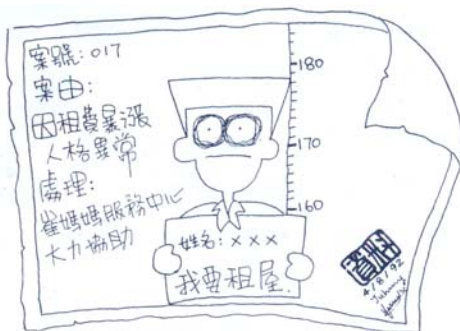 案號：017
案由：
因租費暴漲
人格異常
處理：
崔媽媽服務中心
大力協助
180
170
160
姓名：×××
我要租屋
4/8/92